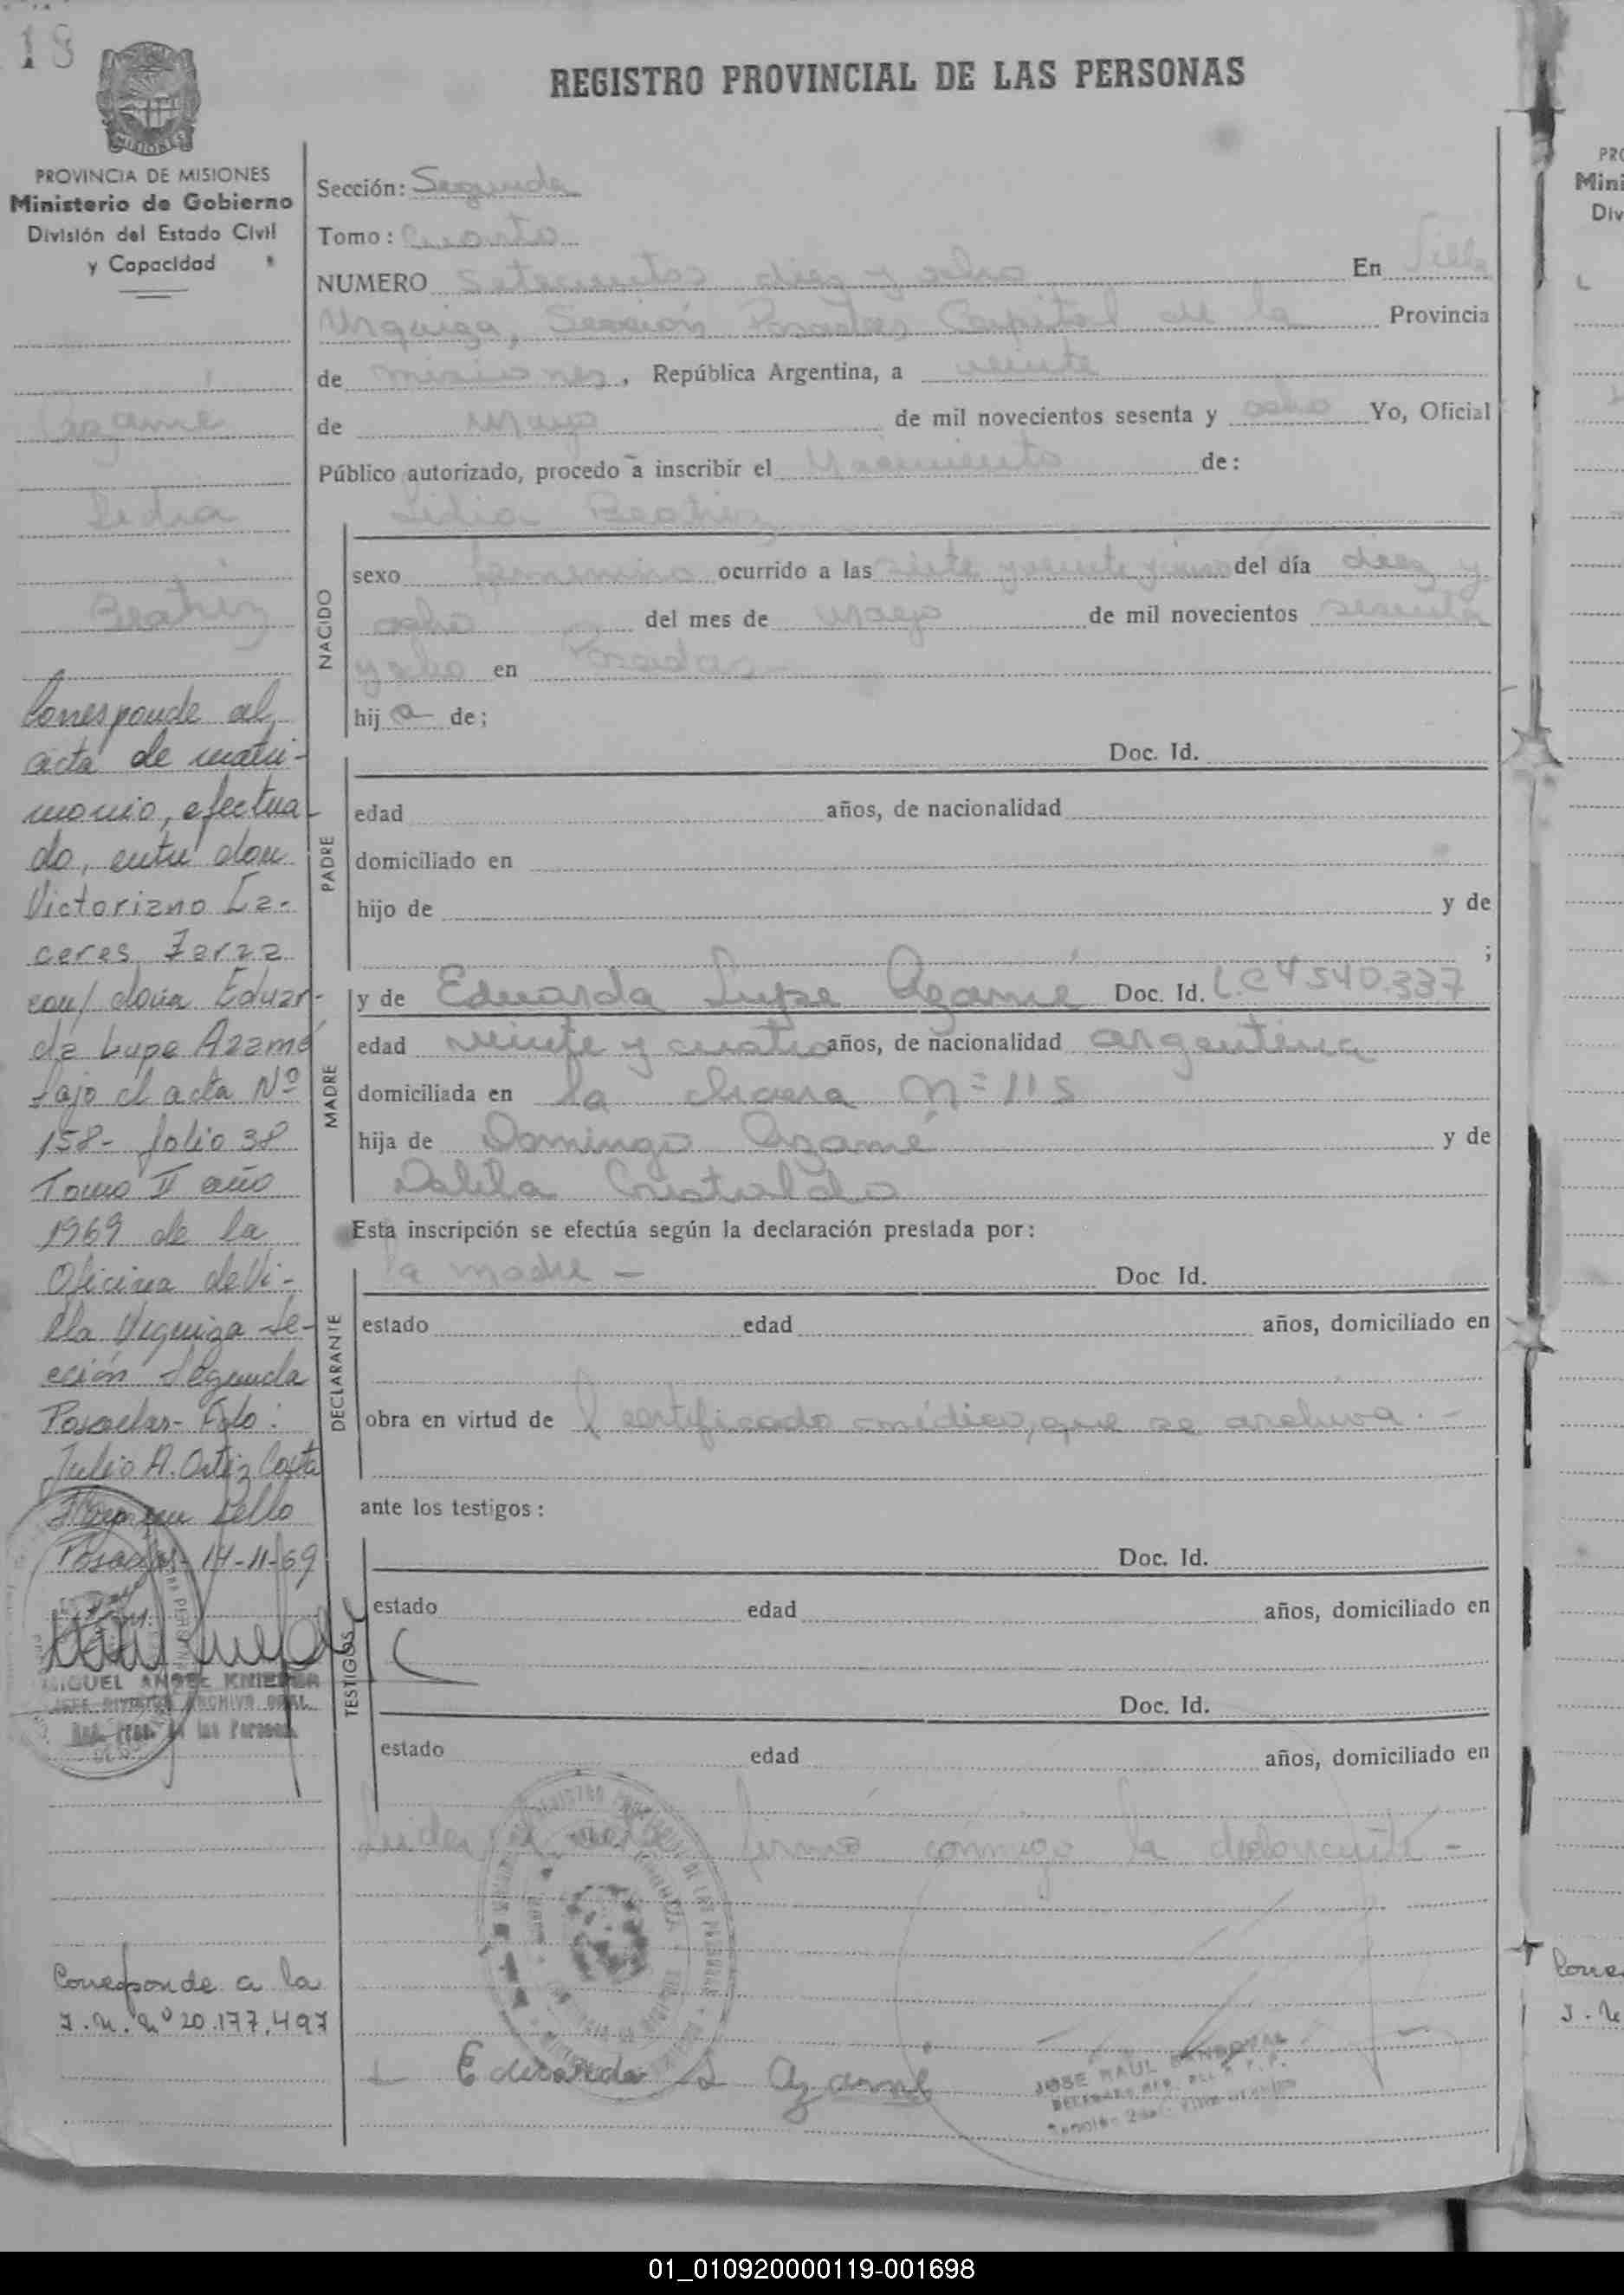 18
REGISTRO PROVINCIAL DE LAS PERSONAS
MISIONES
PROVINCIA DE MISIONES
Ministerio de Gobierno
División del Estado Civil
y Capacidad
Azamé
Lidia
Beatriz
Corresponde al
acta de matri-
monio, efectua-
do, entre don
Victoriano Ca-
ceres Zarza
con/ doña Eduar-
da Lupe Azamé
bajo el acta Nº
158- folio 38
Tomo II año
1969 de la
Oficina de Vi-
lla Urquiza Se-
cción Segunda
Posadas- Fdo:
Julio A. Ortiz
Hay un sello
Posadas- 14-11-69
MIGUEL ANGEL
JEFE DIVISION ARCHIVO GRAL.
de las Personas
Corresponde a la
I.N. Nº 20.177.497
Sección: Segunda
Tomo: Cuarto
NUMERO Setecientos diez y ocho En Villa
Urquiza, Sección Posadas Capital de la Provincia
de Misiones, República Argentina, a veinte
de Mayo de mil novecientos sesenta y ocho Yo, Oficial
Público autorizado, procedo a inscribir el Nacimiento de:
Lidia Beatriz
NACIDO
sexo femenino ocurrido a las siete y veinte y cinco del día diez y
ocho del mes de mayo de mil novecientos sesenta
y ocho en Posadas-
hija de;
PADRE
Doc. Id.
edad años, de nacionalidad
domiciliado en
hijo de y de
;
MADRE
y de Eduarda Lupe Azamé Doc. Id. L.C 4.540.337
edad veinte y cuatro años, de nacionalidad argentina
domiciliada en la chacra Nº 115
hija de Domingo Azamé y de
Dalila Cristaldo
Esta inscripción se efectúa según la declaración prestada por:
DECLARANTE
la madre - Doc Id.
estado edad años, domiciliado en
obra en virtud de certificado médico, que se archiva.-
ante los testigos:
TESTIGOS
Doc. Id.
estado edad años, domiciliado en
Doc. Id.
estado edad años, domiciliado en
Leida el acta firmó conmigo la declarante-
Eduarda L Azamé
JOSE RAUL SANDOVAL
PRO
Mini
Div
Corre
I.N
01_010920000119-001698